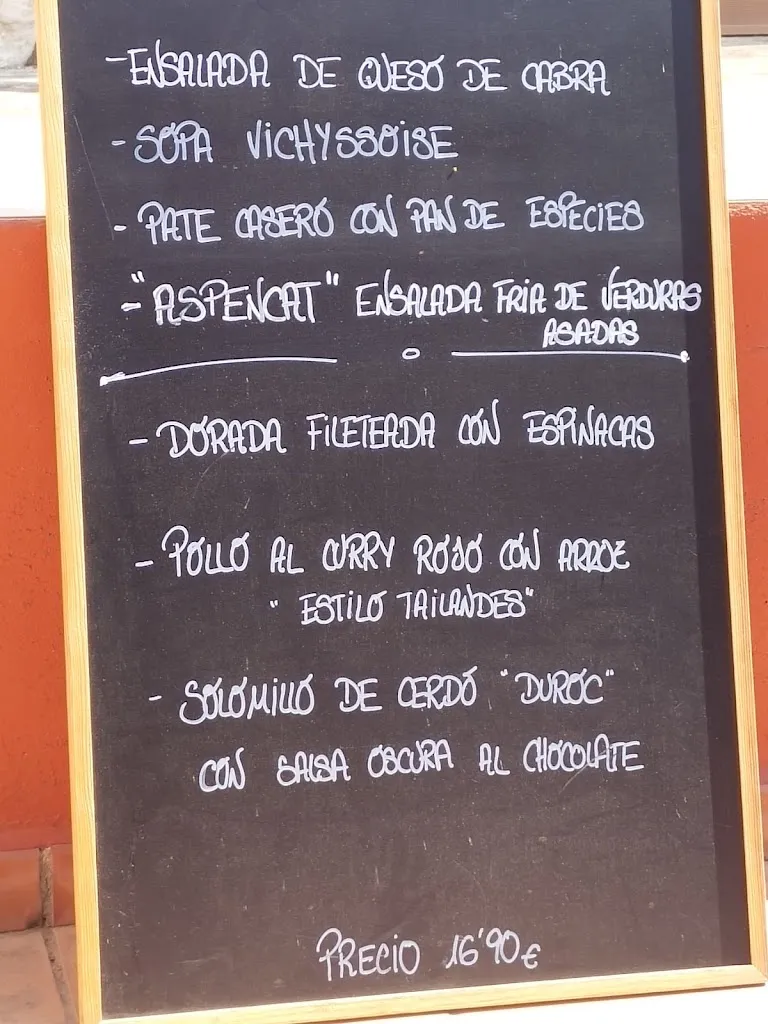 - ENSALADA DE QUESO DE CABRA
- SOPA VICHYSSOISE
- PATE CASERO CON PAN DE ESPECIES
- "ASPENCAT" ENSALADA FRIA DE VERDURAS
ASADAS
o
- DORADA FILETEADA CON ESPINACAS
- POLLO AL CURRY ROJO CON ARROE
" ESTILO TAILANDES"
- SOLOMILLO DE CERDO "DUROC"
CON SALSA OSCURA AL CHOCOLATE
PRECIO 16'90€